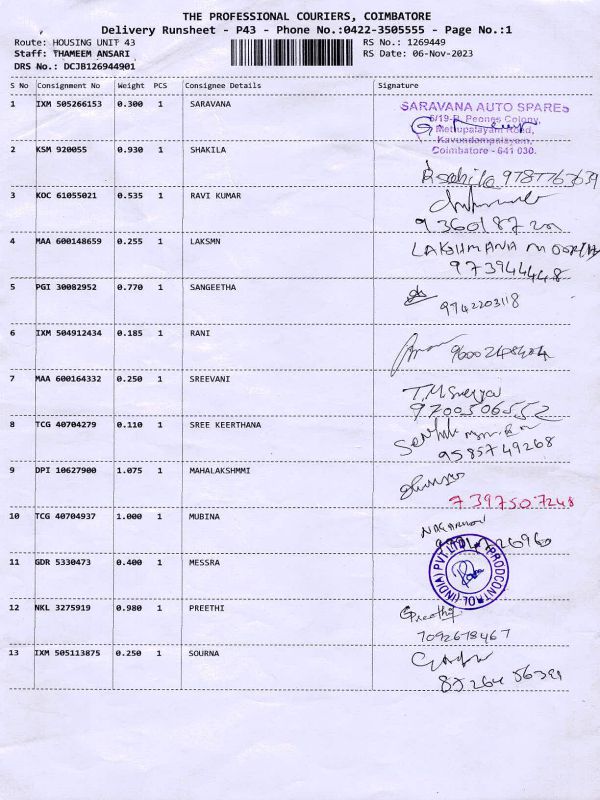 THE PROFESSIONAL COURIERS, COIMBATORE
Delivery Runsheet - P43 - Phone No.:0422-3505555 - Page No.:1
Route: HOUSING UNIT 43 RS No.: 1269449
Staff: THAMEEM ANSARI RS Date: 06-Nov-2023
DRS No.: DCJB126944901
S No Consignment No Weight PCS Consignee Details Signature
1 IXM 505266153 0.300 1 SARAVANA
SARAVANA AUTO SPARES
Peones Colony,
Mettupalayam Road,
Kavundampalayam,
Coimbatore - 641 030.
2 KSM 920055 0.930 1 SHAKILA
9787763639
3 KOC 61055021 0.535 1 RAVI KUMAR
4 MAA 600148659 0.255 1 LAKSMN
5 PGI 30082952 0.770 1 SANGEETHA
9742203118
6 IXM 504912434 0.185 1 RANI
7 MAA 600164332 0.250 1 SREEVANI
9700506552
8 TCG 40704279 0.110 1 SREE KEERTHANA
9585749268
9 DPI 10627900 1.075 1 MAHALAKSHMMI
7397507248
10 TCG 40704937 1.000 1 MUBINA
11 GDR 5330473 0.400 1 MESSRA
PRODCONTROL (INDIA) PVT LTD
12 NKL 3275919 0.980 1 PREETHI
Preethi
7092678467
13 IXM 505113875 0.250 1 SOURNA